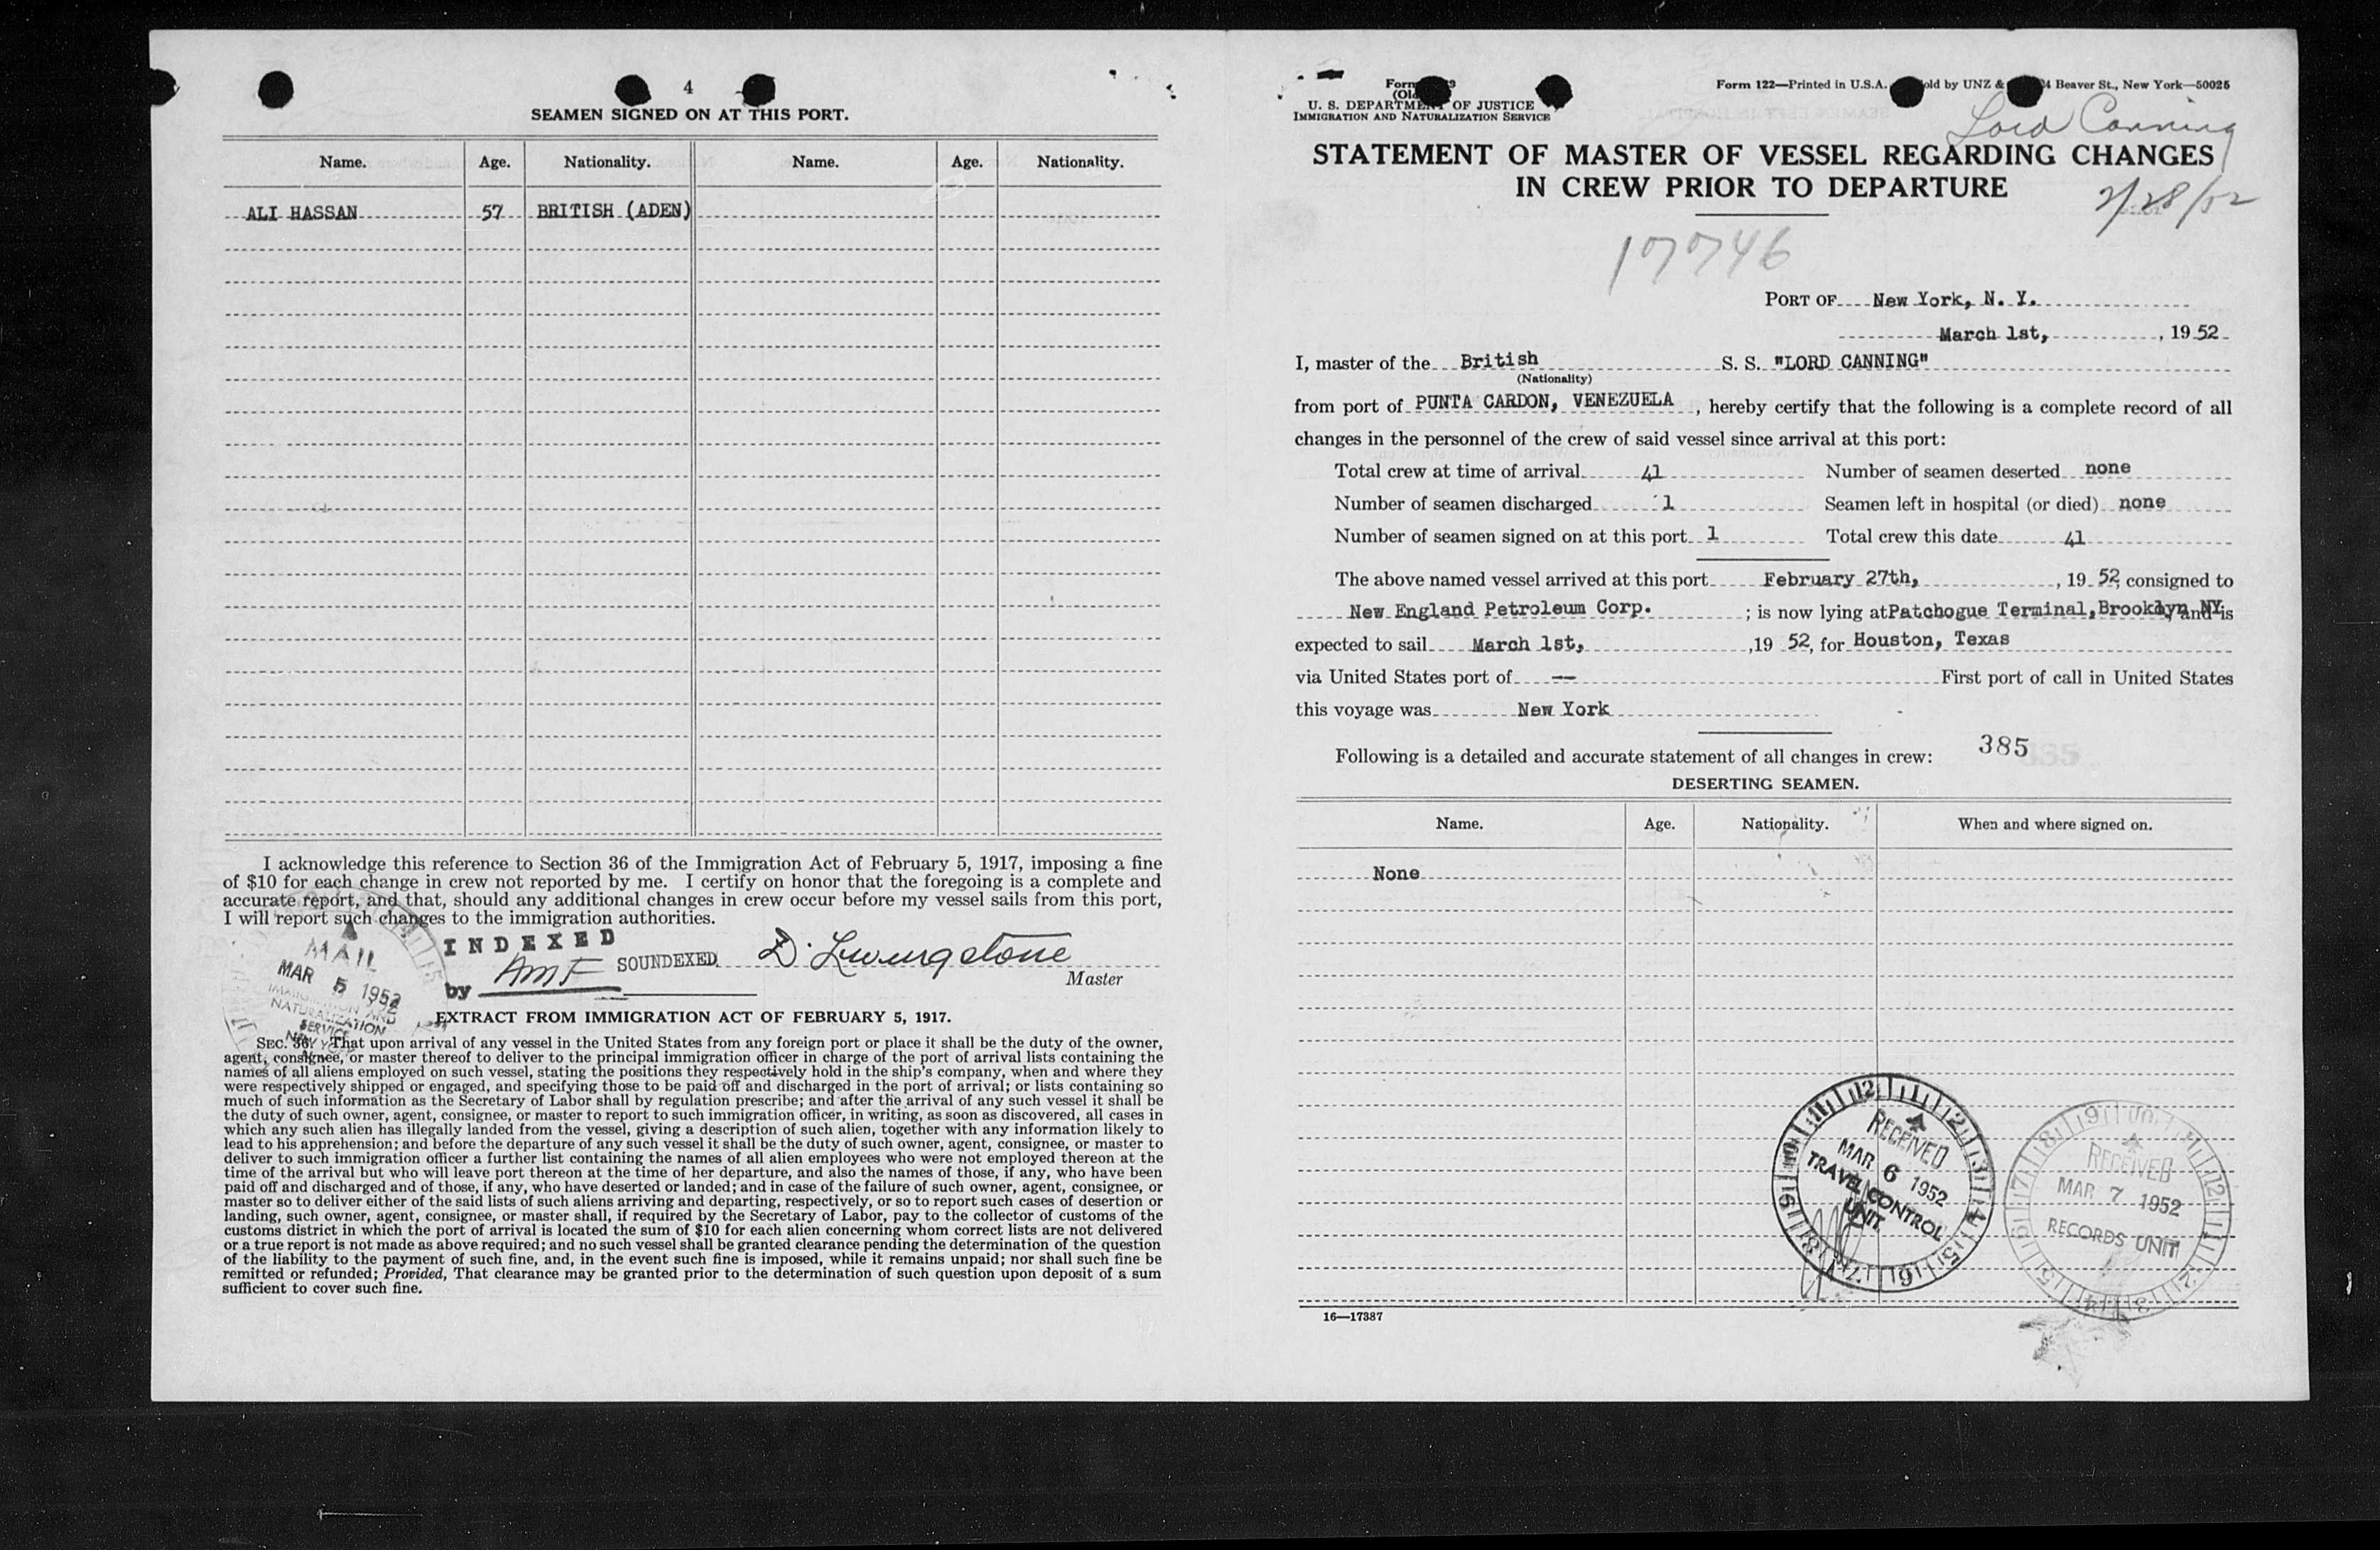 4
SEAMEN SIGNED ON AT THIS PORT.
Name. Age. Nationality. Name. Age. Nationality.
ALI HASSAN 57 BRITISH (ADEN)
I acknowledge this reference to Section 36 of the Immigration Act of February 5, 1917, imposing a fine
of $10 for each change in crew not reported by me. I certify on honor that the foregoing is a complete and
accurate report, and that, should any additional changes in crew occur before my vessel sails from this port,
I will report such changes to the immigration authorities.
MAIL
MAR 5 1952
IMMIGRATION AND
NATURALIZATION
SERVICE
NEW YORK
INDEXED
by AMF
SOUNDEXED
D. Livingstone
Master
EXTRACT FROM IMMIGRATION ACT OF FEBRUARY 5, 1917.
SEC. 36. That upon arrival of any vessel in the United States from any foreign port or place it shall be the duty of the owner,
agent, consignee, or master thereof to deliver to the principal immigration officer in charge of the port of arrival lists containing the
names of all aliens employed on such vessel, stating the positions they respectively hold in the ship's company, when and where they
were respectively shipped or engaged, and specifying those to be paid off and discharged in the port of arrival; or lists containing so
much of such information as the Secretary of Labor shall by regulation prescribe; and after the arrival of any such vessel it shall be
the duty of such owner, agent, consignee, or master to report to such immigration officer, in writing, as soon as discovered, all cases in
which any such alien has illegally landed from the vessel, giving a description of such alien, together with any information likely to
lead to his apprehension; and before the departure of any such vessel it shall be the duty of such owner, agent, consignee, or master to
deliver to such immigration officer a further list containing the names of all alien employees who were not employed thereon at the
time of the arrival but who will leave port thereon at the time of her departure, and also the names of those, if any, who have been
paid off and discharged and of those, if any, who have deserted or landed; and in case of the failure of such owner, agent, consignee, or
master so to deliver either of the said lists of such aliens arriving and departing, respectively, or so to report such cases of desertion or
landing, such owner, agent, consignee, or master shall, if required by the Secretary of Labor, pay to the collector of customs of the
customs district in which the port of arrival is located the sum of $10 for each alien concerning whom correct lists are not delivered
or a true report is not made as above required; and no such vessel shall be granted clearance pending the determination of the question
of the liability to the payment of such fine, and, in the event such fine is imposed, while it remains unpaid; nor shall such fine be
remitted or refunded; Provided, That clearance may be granted prior to the determination of such question upon deposit of a sum
sufficient to cover such fine.
Form 9
(Old
U. S. DEPARTMENT OF JUSTICE
IMMIGRATION AND NATURALIZATION SERVICE
Form 122—Printed in U.S.A. old by UNZ & 4 Beaver St., New York—50025
Lord Canning
STATEMENT OF MASTER OF VESSEL REGARDING CHANGES
IN CREW PRIOR TO DEPARTURE
2/28/52
17746
PORT OF New York, N. Y.
March 1st, , 19 52
I, master of the British S. S. "LORD CANNING"
(Nationality)
from port of PUNTA CARDON, VENEZUELA , hereby certify that the following is a complete record of all
changes in the personnel of the crew of said vessel since arrival at this port:
Total crew at time of arrival 41 Number of seamen deserted none
Number of seamen discharged 1 Seamen left in hospital (or died) none
Number of seamen signed on at this port 1 Total crew this date 41
The above named vessel arrived at this port February 27th, , 19 52, consigned to
New England Petroleum Corp. ; is now lying at Patchogue Terminal, Brooklyn NY, and is
expected to sail March 1st, ,19 52, for Houston, Texas
via United States port of — First port of call in United States
this voyage was New York
Following is a detailed and accurate statement of all changes in crew: 385
DESERTING SEAMEN.
Name. Age. Nationality. When and where signed on.
None
RECEIVED
MAR 6 1952
TRAVEL CONTROL
UNIT
RECEIVED
MAR 7 1952
RECORDS UNIT
16—17387